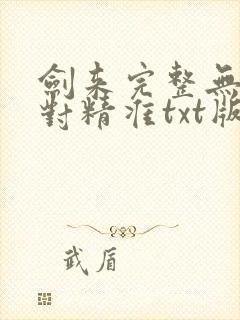 劍来完整無
對精准txt版
武盾